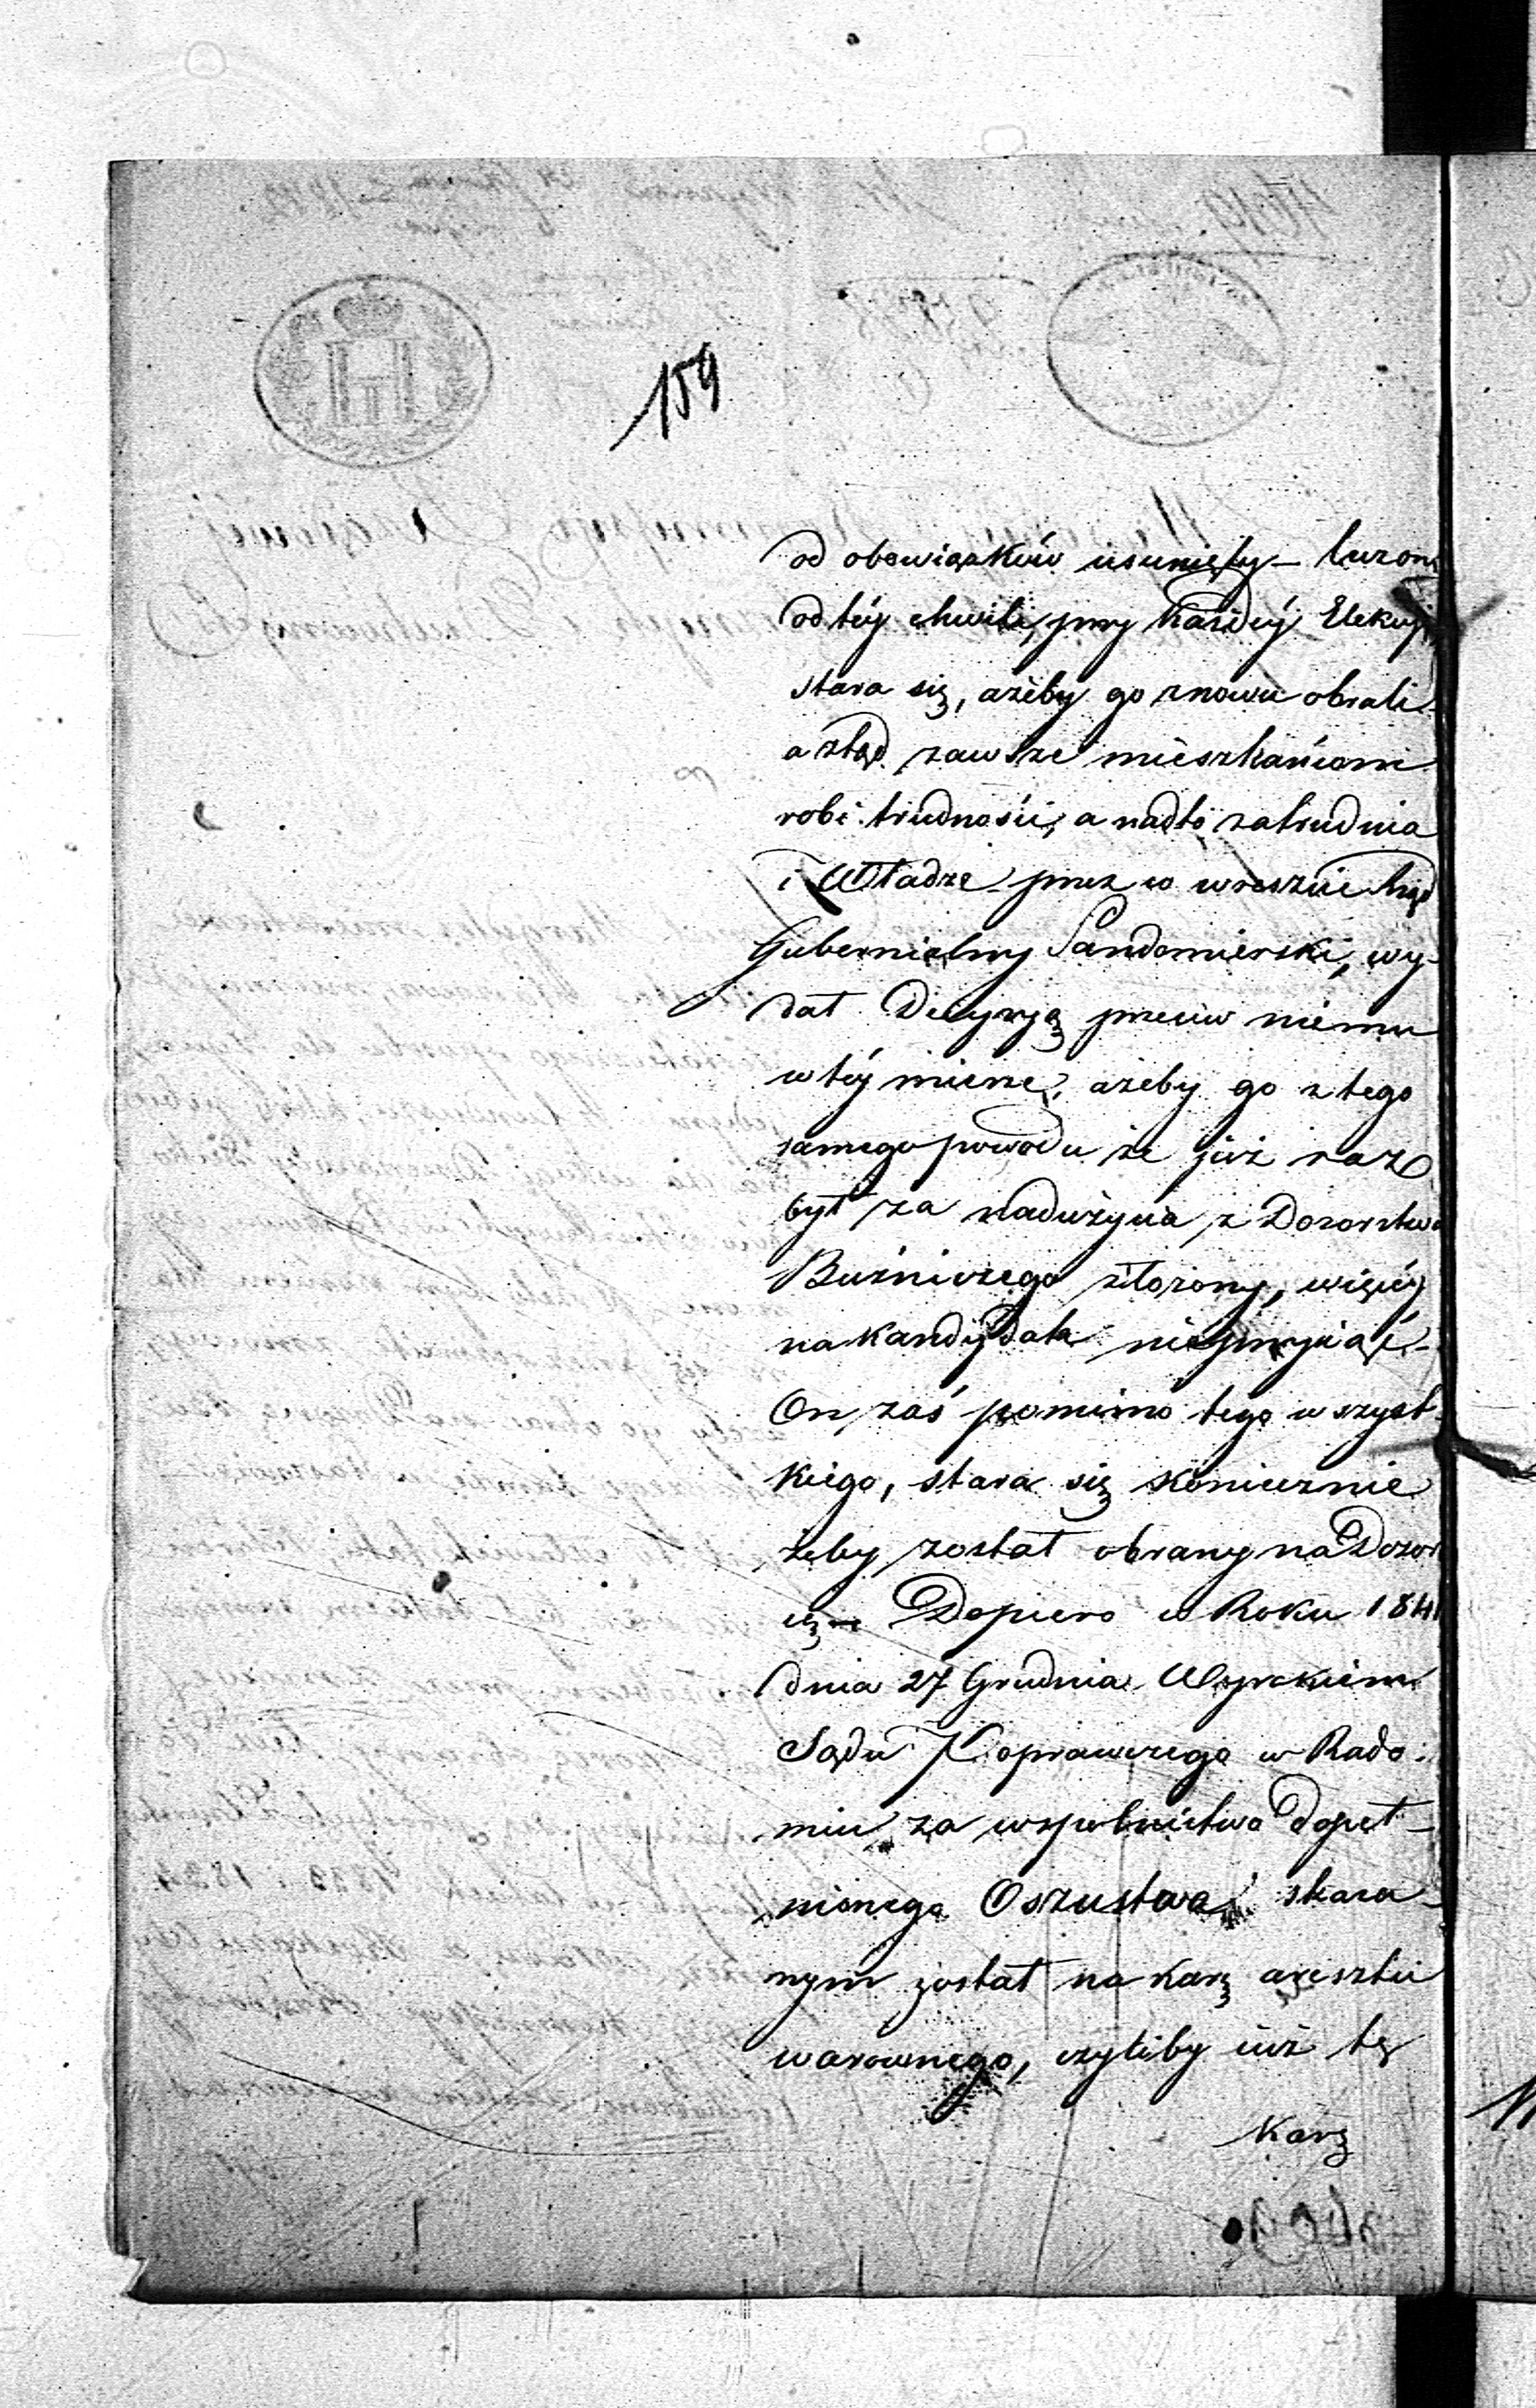 159
od obowiązków usunięty –
od téj chwili, przy każdéj Elekcyi
stara się, ażeby go znowu obrali
a ztąd zawsze mieszkańcom
robi trudności, a nadto zatrudnia
i Władze – przez co wreszcie Rząd
Gubernialny Sandomierski, wy-
dał Decyzyą przeciw niemu
w téj mierze, ażeby go z tego
samego powodu że już raz
był za nadużycia z Dozorstwa
Bużniczego złożony, więcéj
na kandydata nieprzyjąć –
On zaś pomimo tego wszyst-
kiego, stara się koniecznie
żeby został obrany na Dozor
cę – Dopiero w Roku 1841
dnia 27 Grudnia Wyrokiem
Sądu Poprawczego w Rado-
miu za wspolnictwo dopeł-
nionego Oszustwa, skara-
nym został na karę aresztu
warownego, czyliby już tę
karę